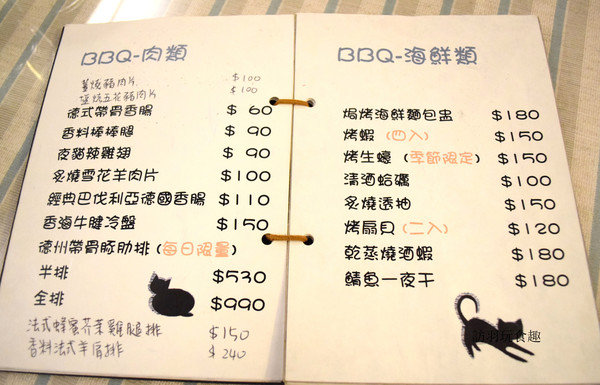 BBQ-肉類
薑燒豬肉片 $100
鹽燒五花豬肉片 $100
德式帶骨香腸 $ 60
香料棒棒腿 $ 90
夜貓辣雞翅 $ 90
炙燒雪花羊肉片 $100
經典巴伐利亞德國香腸 $110
香滷牛腱冷盤 $150
德州帶骨豚肋排 (每日限量)
半排 $530
全排 $990
法式蜂蜜芥茉雞腿排 $150
香料法式羊肩排 $240
BBQ-海鮮類
焗烤海鮮麵包盅 $180
烤蝦 (四入) $150
烤生蠔 (季節限定) $150
清酒蛤蠣 $100
炙燒透抽 $150
烤扇貝 (二入) $120
乾蒸燒酒蝦 $180
鯖魚一夜干 $180
訪羽玩食趣